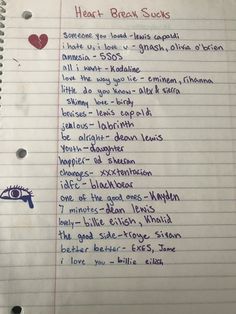 Heart Break Sucks
someone you loved - lewis capaldi
i hate u, i love u - gnash, olivia o'brien
amnesia - 5SOS
all i want - kodaline
love the way you lie - eminem, rihanna
little do you know - alex & sierra
skinny love - birdy
bruises - lewis capaldi
jealous - labrinth
be alright - dean lewis
youth - daughter
happier - ed sheeran
changes - xxxtentacion
idfc - blackbear
one of the good ones - Kayden
7 minutes - dean lewis
lovely - billie eilish, Khalid
the good side - troye sivan
better better - EXES,
i love you - billie eilish